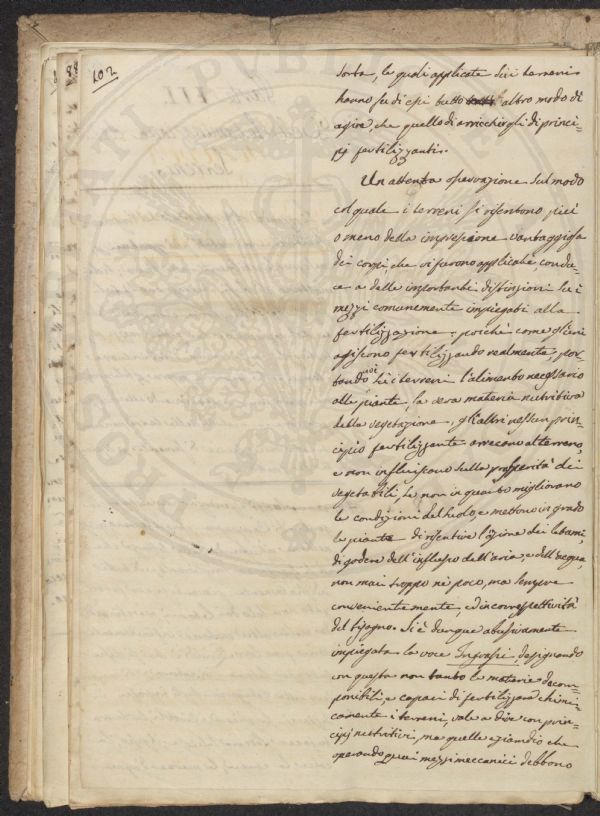 102
sorta, le quali applicate su i terreni
hanno su di essi tutto altro modo di
agire, che quello di arricchirgli di princi-
pj fertilizzanti.
Un attenta osservazione sul modo
col quale i terreni si risentono più
o meno della impressione vantaggiosa
dei corpi, che vi furono applicati, condu-
ce a delle importanti distinzioni su i
mezzi comunemente impiegati alla
fertilizzazione; poichè come gli uni
agiscono fertilizzando realmente, por-
tando su i terreni l'alimento necessario
alle piante, la vera materia nutritiva
della vegetazione, gli altri nessun prin-
cipio fertilizzante arrecano al terreno,
e non influiscono sulla prosperità dei
vegetabili, se non in quanto migliorano
le condizioni del suolo, e mettono in grado
le piante di risentire l'azione dei letami,
di godere dell'influsso dell'aria, e dell'acqua,
non mai troppo nè poco, ma sempre
convenientemente, ed in correspettività
del bisogno. Si è dunque abusivamente
impiegata la voce Ingrassi, designando
con questa non tanto le materie decom-
ponibili, e capaci di fertilizzare chimi-
camente i terreni, vale a dire con prin-
cipj nutritivi, ma quelle eziandio che
operando quai mezzi meccanici debbono